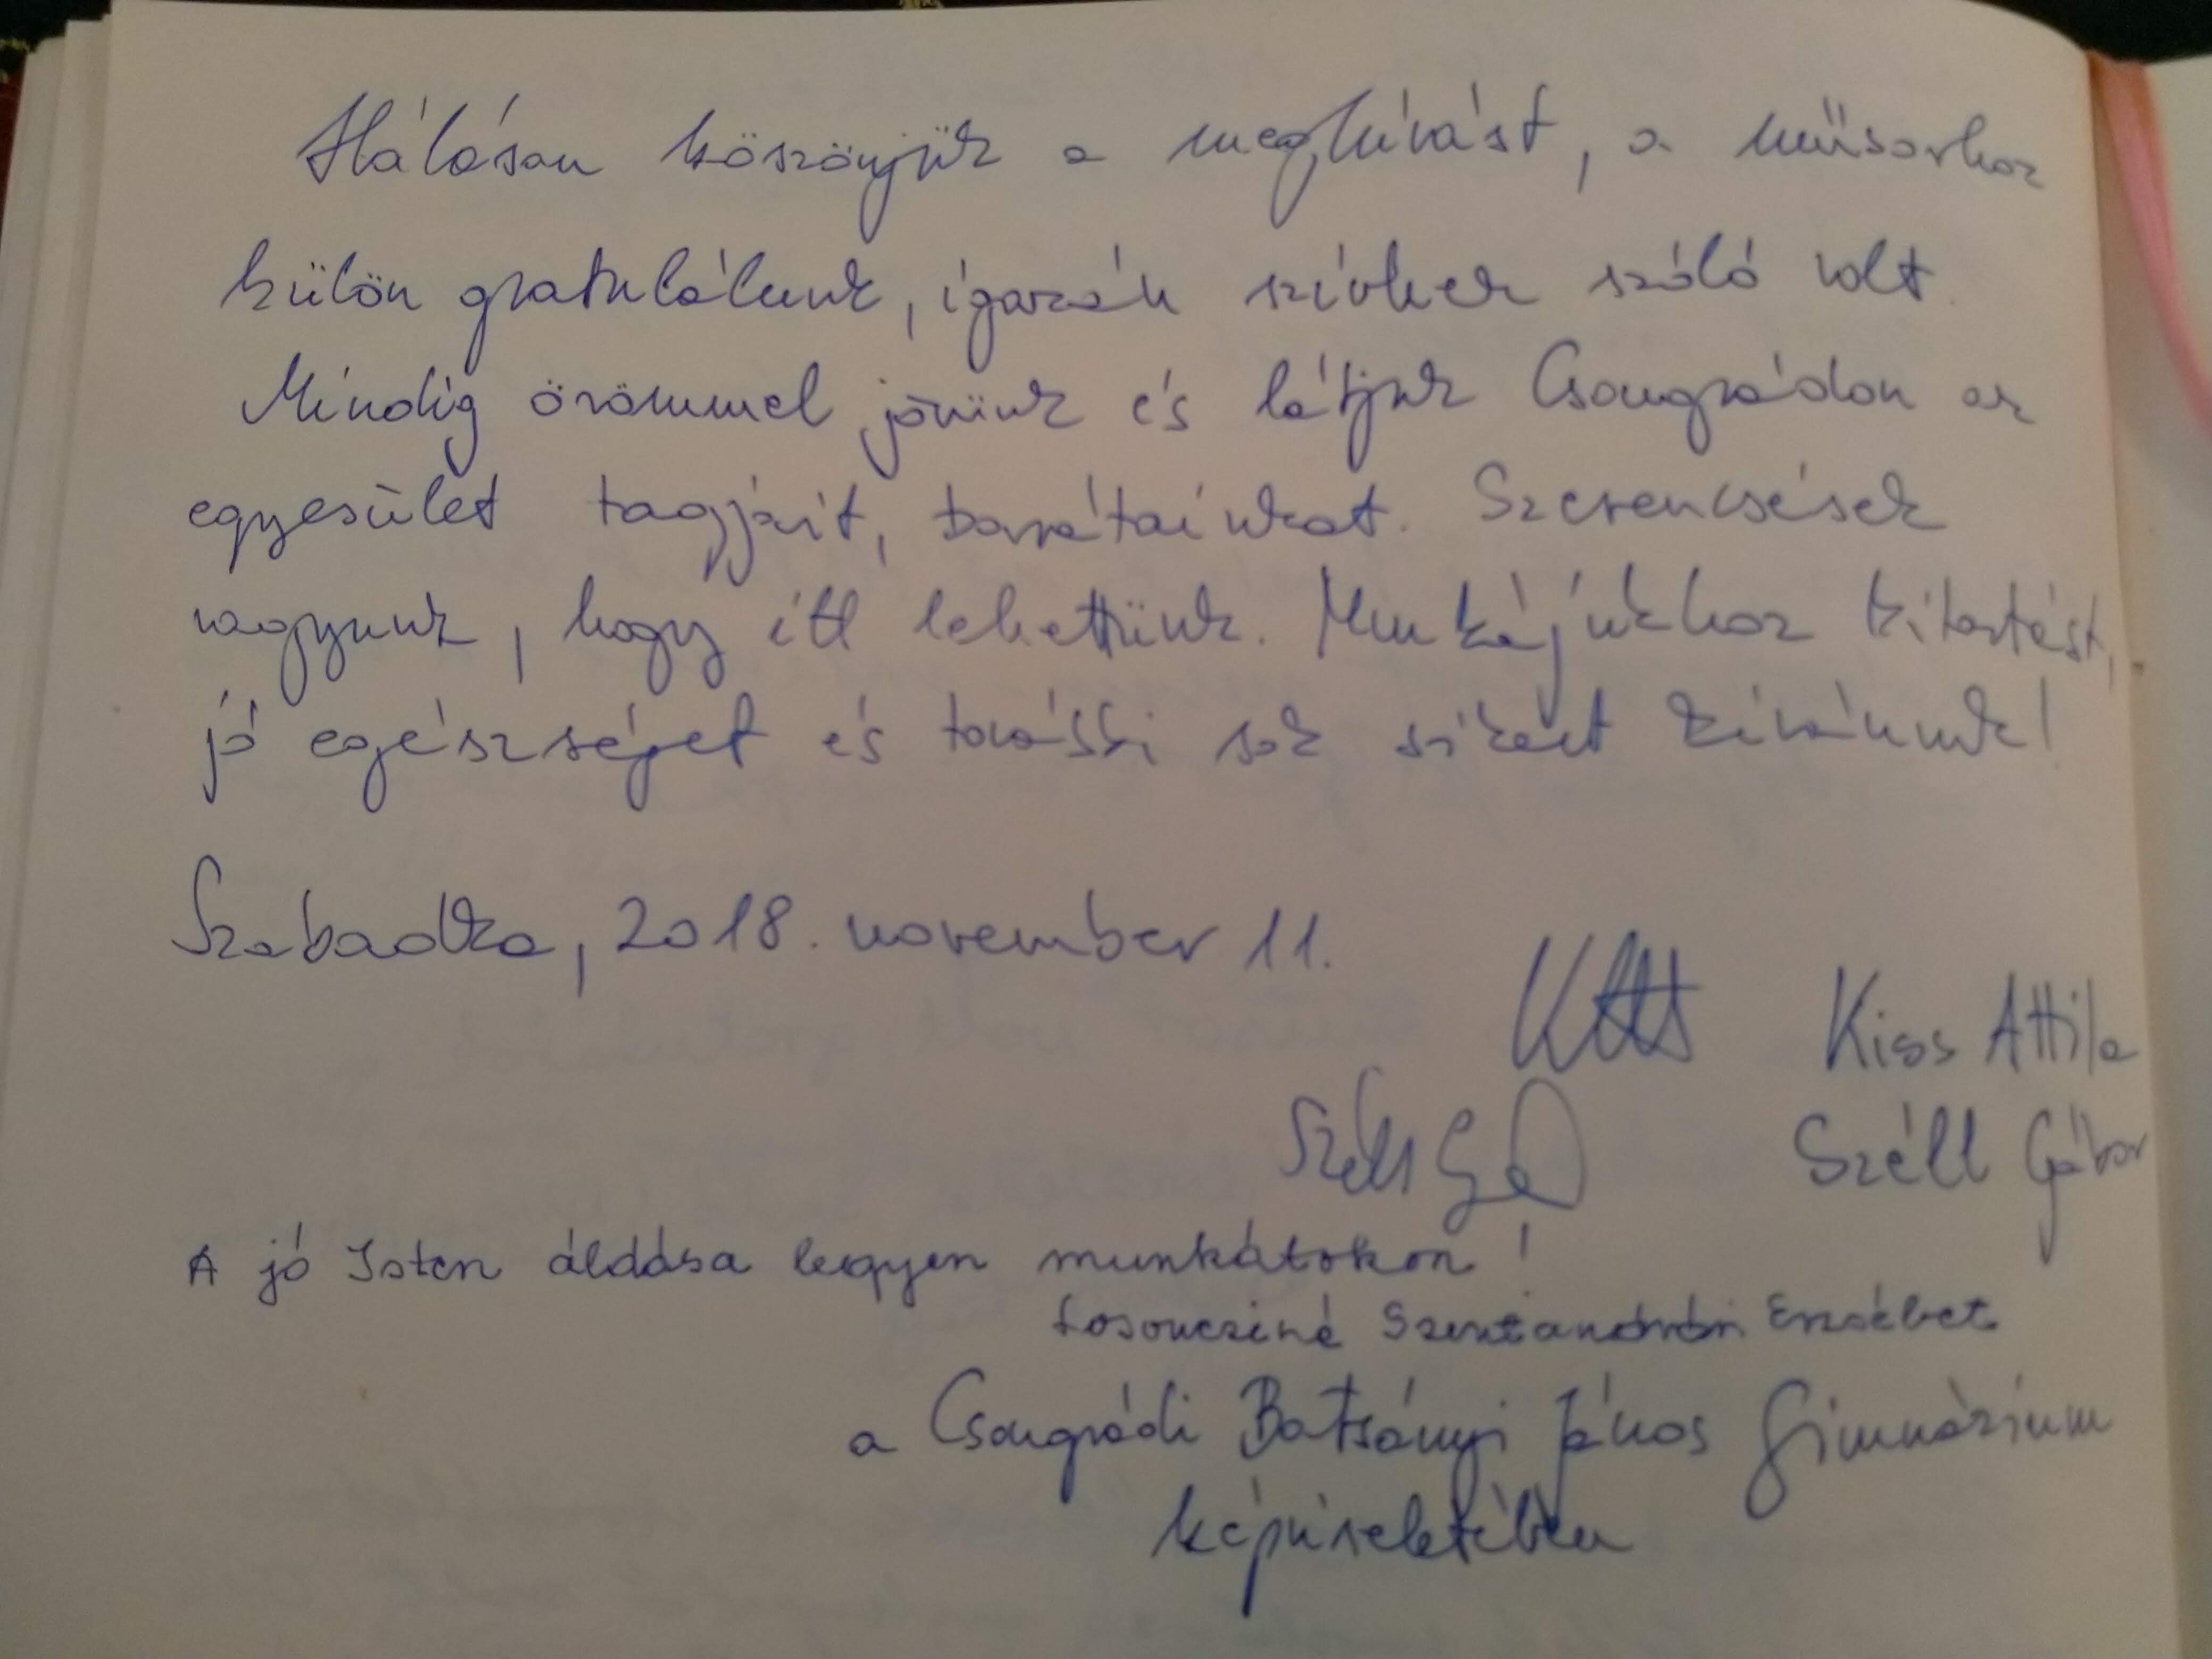 Hálásan köszönjük a meghívást, a műsorhoz
külön gratulálunk, igazán szívhez szóló volt.
Mindig örömmel jövünk és látjuk Csongrádon az
egyesület tagjait, barátainkat. Szerencsések
vagyunk, hogy itt lehettünk. Munkájukhoz kitartást,
jó egészséget és további sok sikert kívánunk!
Szabadka, 2018. november 11.
Kiss Attila
Széll Gábor
A jó Isten áldása legyen munkátokon!
Losoncziné Szentandrási Erzsébet
a Csongrádi Batsányi János Gimnázium
képviseletében